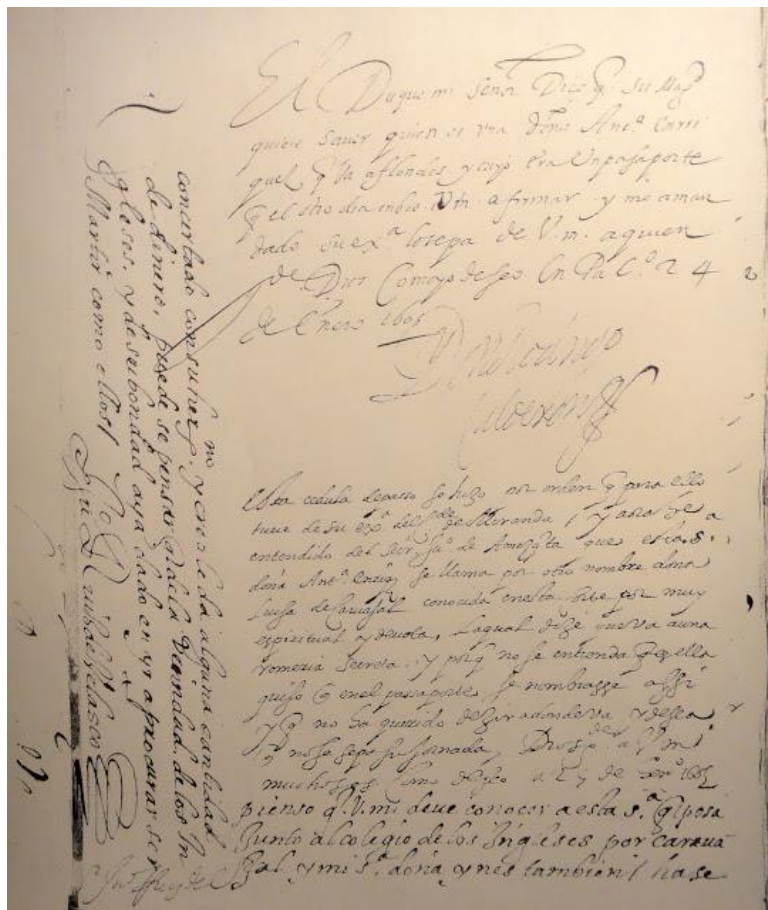 El Duque mi señor Dice q̃ su Magᵈ
quiere saver quien es una doña Antª Enrri
quez q̃ va a flandes y cuyo era Un pasaporte
q̃ el otro dia embio Vm. a firmar y me a man
dado su exª lo sepa de V.m. a quien
gᵈᵉ Dios Como yo deseo En Palº 24
de Enero 1605
Don Rodrigo
Calderon
Esta cedula de passo se hizo por orden q̃ para ello
tuve de su exª del sʳ de Miranda / y aora he
entendido del señor Juº de Amezqta que esta sª
doña Antª Enrriz se llama por otro nombre doña
Luisa de Caruajal conocida en esta corte por muy
espiritual y deuota, la qual dize que va a una
romeria secreta. y porq̃ no se entienda q̃ es ella
quiso q̃ en el passaporte se nombrasse assi
y q̃ no ha querido dezir a donde va y dessea
q̃ no se sepa su jornada, Dios gᵈᵉ a V mᵈ
muchos años como deseo a 25 de Enrº 1605
pienso q̃ V.mᵈ deue conocer a esta sª q̃ posa
Junto al colegio de los Ingleses por caraua
Jal y mi sª doña ynes tambien / hase
concertado con su herᵐᵒ y creo le da alguna cantidad
de dinero, puede se pensar q̃ a la Viennaud. de los In
gleses. y de su bondad aya dado en yr a procurar ser
Martir como ellos /
Juº Ruiz de Velasco